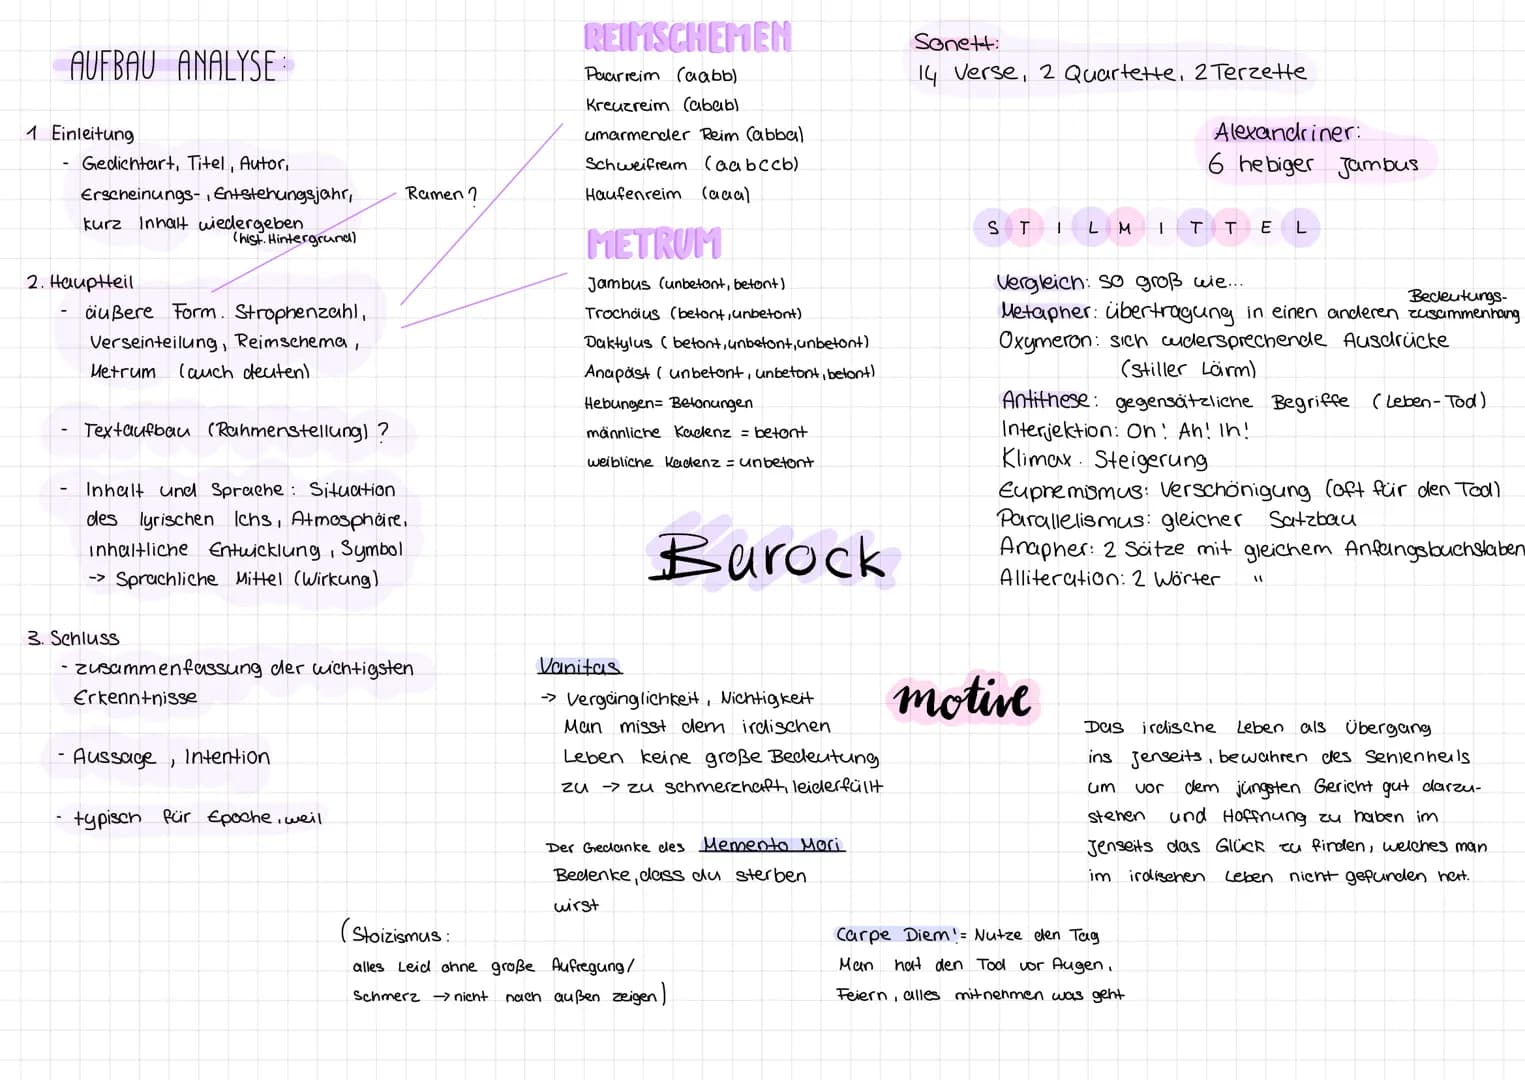 AUFBAU ANALYSE:
1 Einleitung
- Gedichtart, Titel, Autor,
Erscheinungs-, Entstehungsjahr,
kurz Inhalt wiedergeben
(hist. Hintergrund)
Ramen?
2. Hauptteil
- äußere Form. Strophenzahl,
Verseinteilung, Reimschema,
Metrum (auch deuten)
- Textaufbau (Rahmenstellung) ?
- Inhalt und Sprache: Situation
des lyrischen Ichs, Atmosphäre,
inhaltliche Entwicklung, Symbol
-> Sprachliche Mittel (Wirkung)
3. Schluss
- zusammenfassung der wichtigsten
Erkenntnisse
- Aussage, Intention
- typisch für Epoche, weil
REIMSCHEMEN
Paarreim (aabb)
Kreuzreim (abab)
umarmender Reim (abba)
Schweifreim (aabccb)
Haufenreim (aaa)
METRUM
Jambus (unbetont, betont)
Trochäus (betont, unbetont)
Daktylus (betont, unbetont, unbetont)
Anapäst (unbetont, unbetont, betont)
Hebungen= Betonungen
männliche Kadenz = betont
weibliche Kadenz = unbetont
Sonett:
14 Verse, 2 Quartette, 2 Terzette
Alexandriner:
6 hebiger Jambus
STILMITTEL
Vergleich: so groß wie...
Metapher: übertragung in einen anderen Bedeutungs-
zusammenhang
Oxymeron: sich widersprechende Ausdrücke
(stiller Lärm)
Antithese: gegensätzliche Begriffe (Leben-Tod)
Interjektion: Oh! Ah! Ih!
Klimax. Steigerung
Euphemismus: Verschönigung (oft für den Tod)
Parallelismus: gleicher Satzbau
Anapher: 2 Sätze mit gleichem Anfangsbuchstaben
Alliteration: 2 Wörter "
Barock
motive
Vanitas
-> Vergänglichkeit, Nichtigkeit
Man misst dem irdischen
Leben keine große Bedeutung
zu -> zu schmerzhaft, leiderfüllt
Der Gedanke des Memento Mori
Bedenke, dass du sterben
wirst
Das irdische Leben als Übergang
ins Jenseits, bewahren des Sehlenheils
um vor dem jüngsten Gericht gut darzu-
stehen und Hoffnung zu haben im
Jenseits das Glück zu finden, welches man
im irdischen Leben nicht gefunden hat.
(Stoizismus:
alles Leid ohne große Aufregung/
Schmerz -> nicht nach außen zeigen)
Carpe Diem' = Nutze den Tag
Man hat den Tod vor Augen,
Feiern, alles mitnehmen was geht